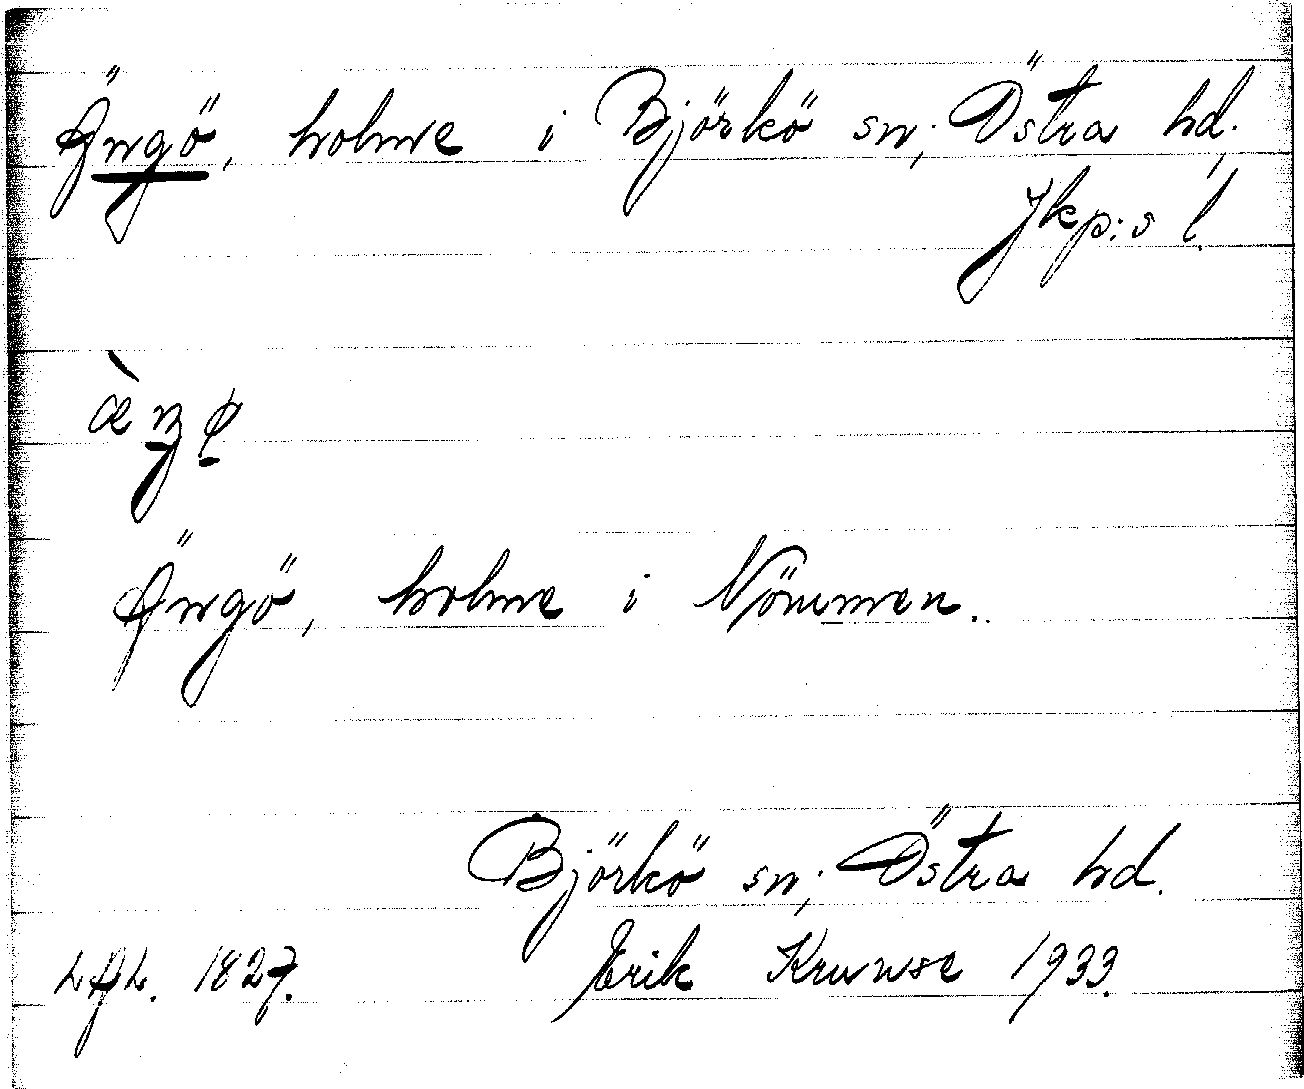 Ängö, holme i Björkö sn; Östra hd;
Jkp:s l.
Ängö, holme i Nömmen.
Björkö sn; Östra hd.
LAL. 1827. Erik Kruuse 1933.